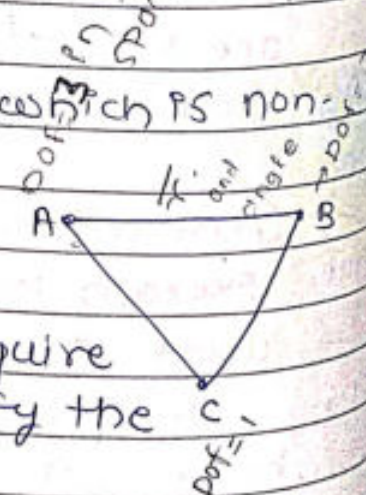 which is non-
DOF
and angle → DOF
A B
quire
fy the C
DOF = 1